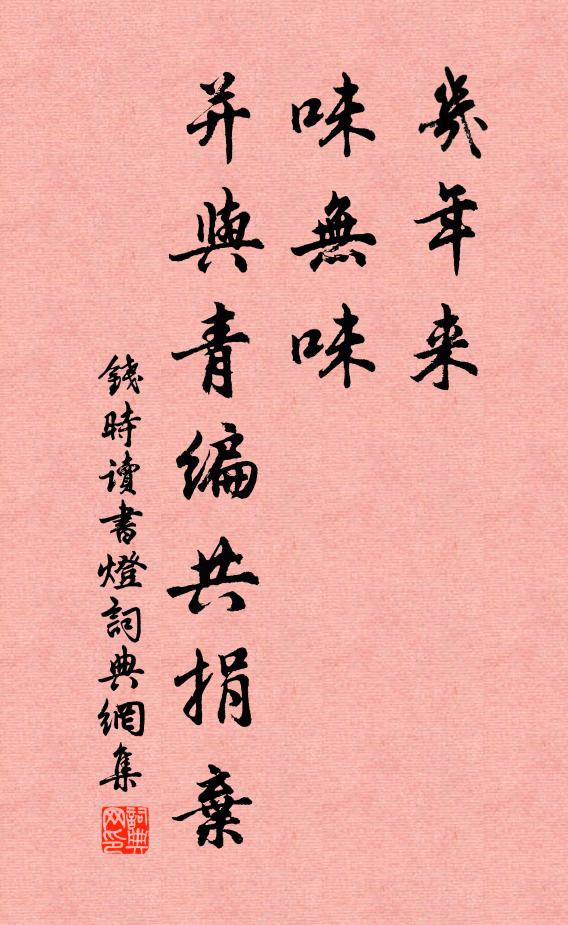 幾年来
味無味
并與青編共捐棄
錢時讀書燈詞典網集
詞典
网印